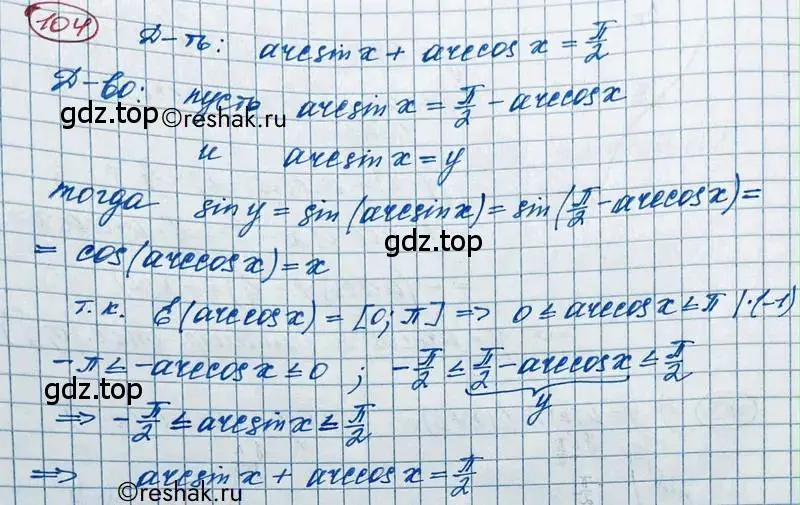 104
Д-ть: arcsin x + arccos x = π/2
Д-во: пусть arcsin x = π/2 - arccos x
gdz.top ©reshak.ru
и arcsin x = y
тогда sin y = sin(arcsin x) = sin(π/2 - arccos x) =
gdz.top
= cos(arccos x) = x
т.к. E(arccos x) = [0; π] => 0 ≤ arccos x ≤ π |·(-1)
-π ≤ -arccos x ≤ 0 ; -π/2 ≤ π/2 - arccos x ≤ π/2
y
gdz.top
=> -π/2 ≤ arcsin x ≤ π/2
=> arcsin x + arccos x = π/2
©reshak.ru